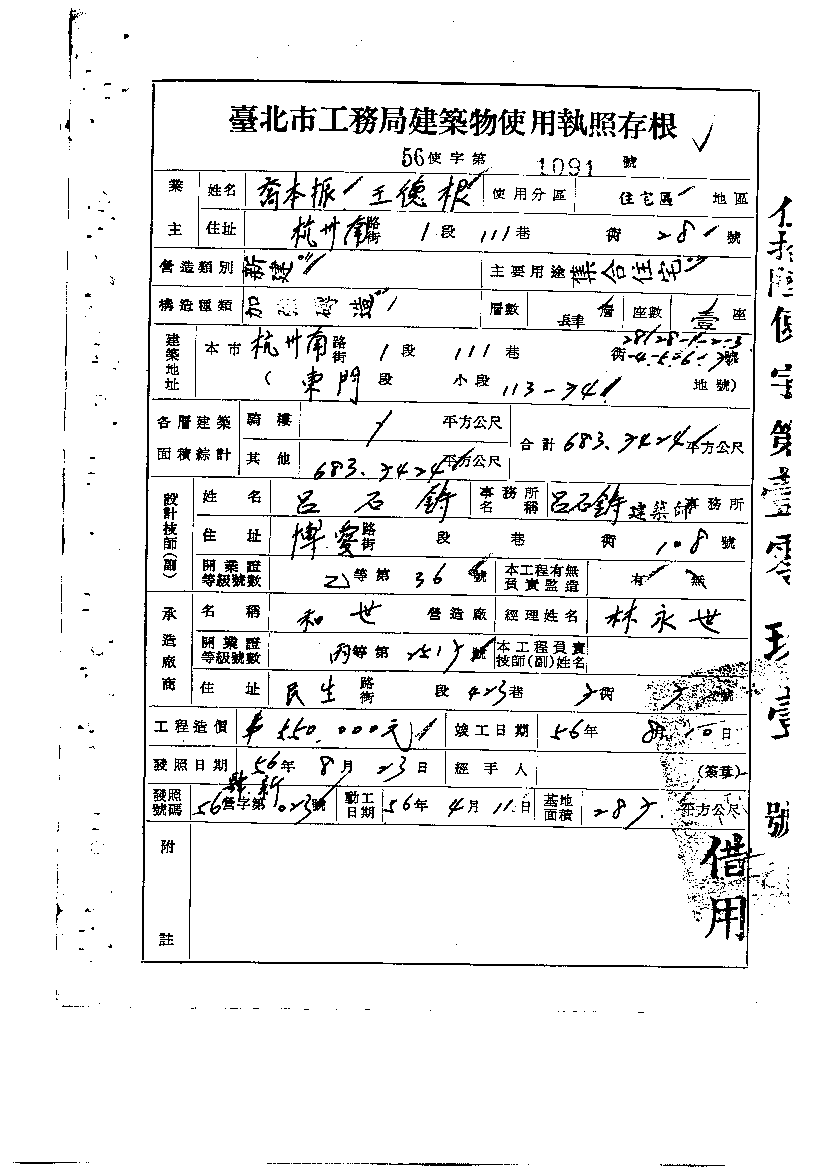 臺北市工務局建築物使用執照存根
56使字第 1091 號
業主 姓名 喬本振 王德根 使用分區 住宅區 地區
住址 杭州南路街 1段 111巷 街 28 號
營造類別 新建 主要用途 集合住宅
構造種類 加強磚造 層數 肆層 座數 壹座
建築地址 本市 杭州南路街 1段 111巷 街 號
(東門段 小段 113- 地號)
各層建築面積綜計 騎樓 平方公尺 合計 683. 平方公尺
其他 683. 平方公尺
設計技師(副) 姓名 呂石 事務所名稱 呂石 建築師事務所
住址 博愛路街 段 巷 街 108 號
開業證等級號數 乙等第 36 號 本工程有無負責監造 有 無
承造廠商 名稱 和世 營造廠 經理姓名 林永世
開業證等級號數 丙等第 號 本工程負責技師(副)姓名
住址 民生路街 段 423巷 街 號
工程造價 550.000元 竣工日期 56年 8.10日
發照日期 56年 8月 23日 經手人 (簽章)
發照號碼 56營字第 023號 動工日期 56年 4月 11日 基地面積 平方公尺
附註
借用
伍拾陸使字第壹零玖壹號